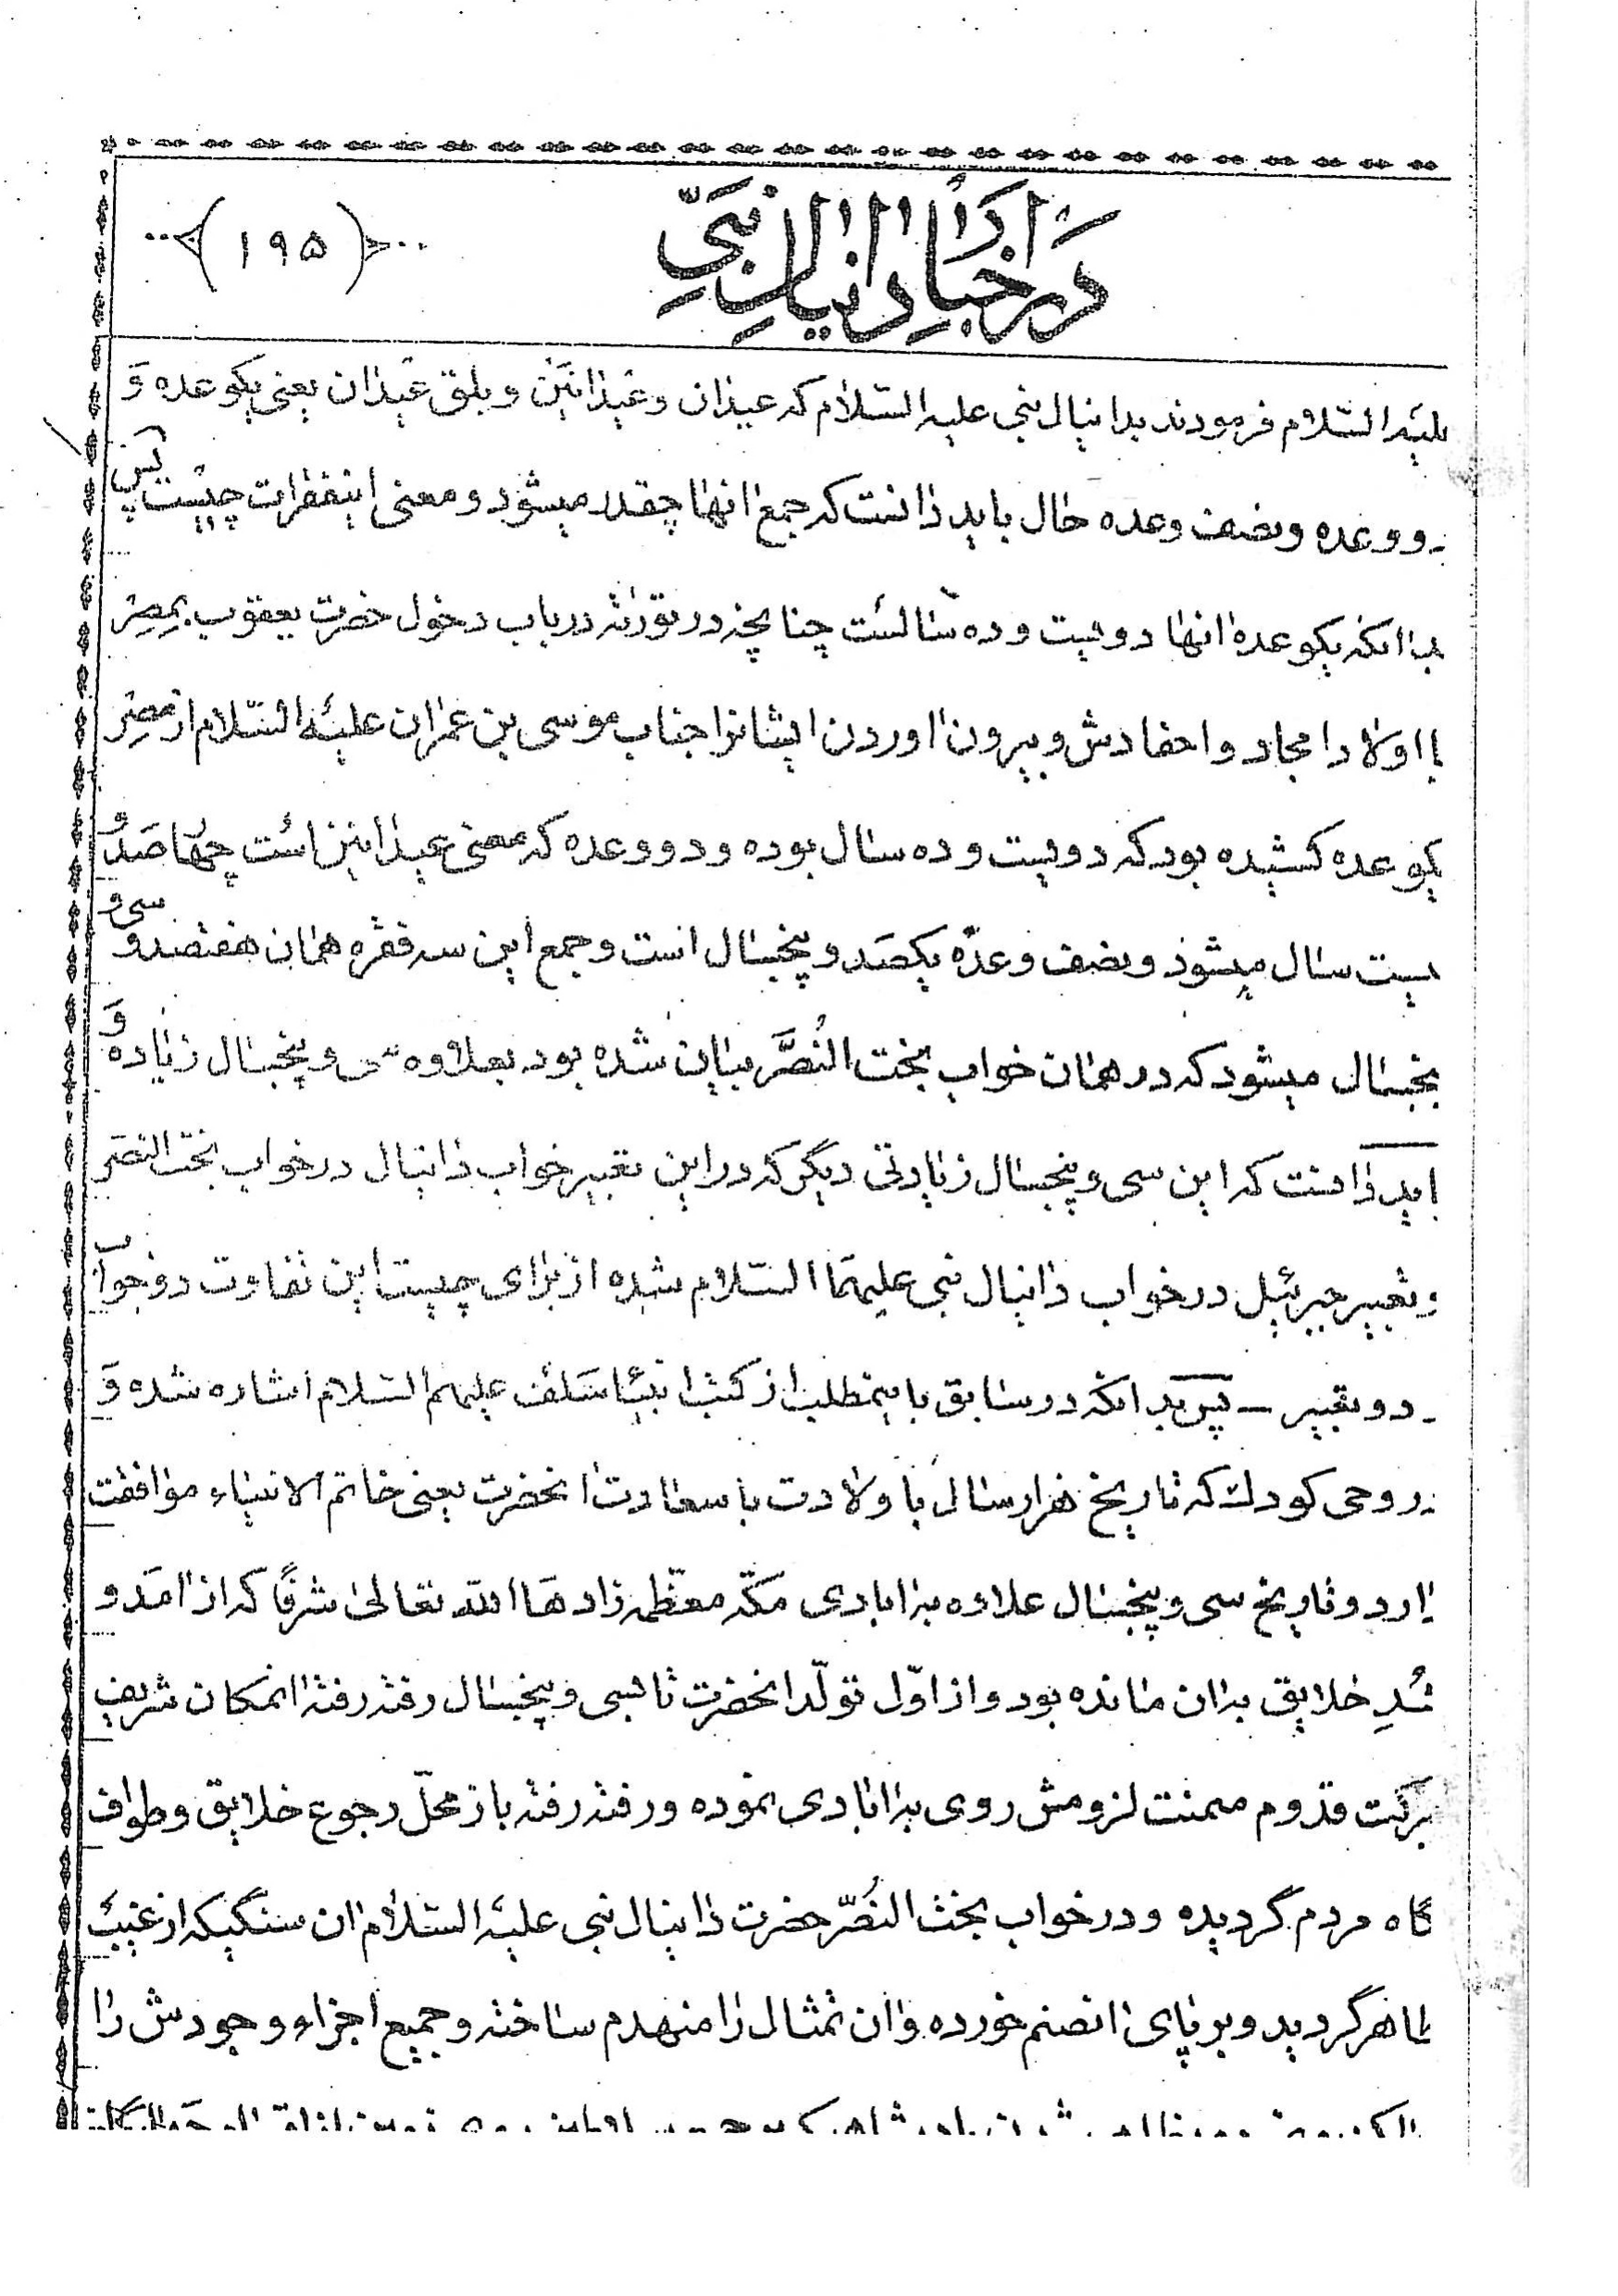 در اخبار دانیال نبی
(۱۹۵)
علیه السّلام فرمودند بدانیال نبی علیه السّلام که عیدان وعیدانین و بلق عیدان یعنی یکوعده وَ
دووعده ونصف وعده حال باید دانست که جمع انها چقدر میشود ومعنی اینفقرات چیست پس
بدانکه یکوعدهٔ انها دویست وده سالست چنانچه در توریة در باب دخول حضرت یعقوب بمصر
با اولاد امجاد و احفادش و بیرون اوردن ایشانرا جناب موسی بن عمران علیه السّلام از مصر
یکوعده کشیده بود که دویست و ده سال بوده و دووعده که معنی عیدانین است چهارصد و
بیست سال میشود ونصف وعده یکصد و پنجسال است و جمع این سه فقره همان هفتصد و سی و
پنجسال میشود که در همان خواب بخت النُصَّر بیان شده بود بعلاوه سی و پنجسال زیاده وَ
باید دانست که این سی و پنجسال زیادتی دیگر که در این تعبیر خواب دانیال در خواب بخت النصر
وتعبیر جبرئیل در خواب دانیال نبی علیهما السّلام شده از برای چیست این تفاوت دو خواب
و دو تعبیر ــ پس بدانکه در سابق باینمطلب از کتب انبیا سلف علیهم السّلام اشاره شده وَ
در وحی کودک که تاریخ هزار سال با ولادت با سعادت انحضرت یعنی خاتم الانبیاء موافقت
دارد و تاریخ سی و پنجسال علاوه بر ابادی مکّه معظّمه زادها الله تعالی شرفاً که از امد و
شُدِ خلایق بران مانده بود و از اوّل تولّد انحضرت تا سی و پنجسال رفته رفته انمکان شریف
ببرکت قدوم میمنت لزومش روی بر ابادی نموده و رفته رفته باز محلّ رجوع خلایق و طواف
گاه مردم گردیده و در خواب بخت النُصّر حضرت دانیال نبی علیه السّلام ان سنگیکه از غیب
ظاهر گردید و بر پای انصنم خورده و ان تمثال را منهدم ساخته و جمیع اجزاء وجودش را